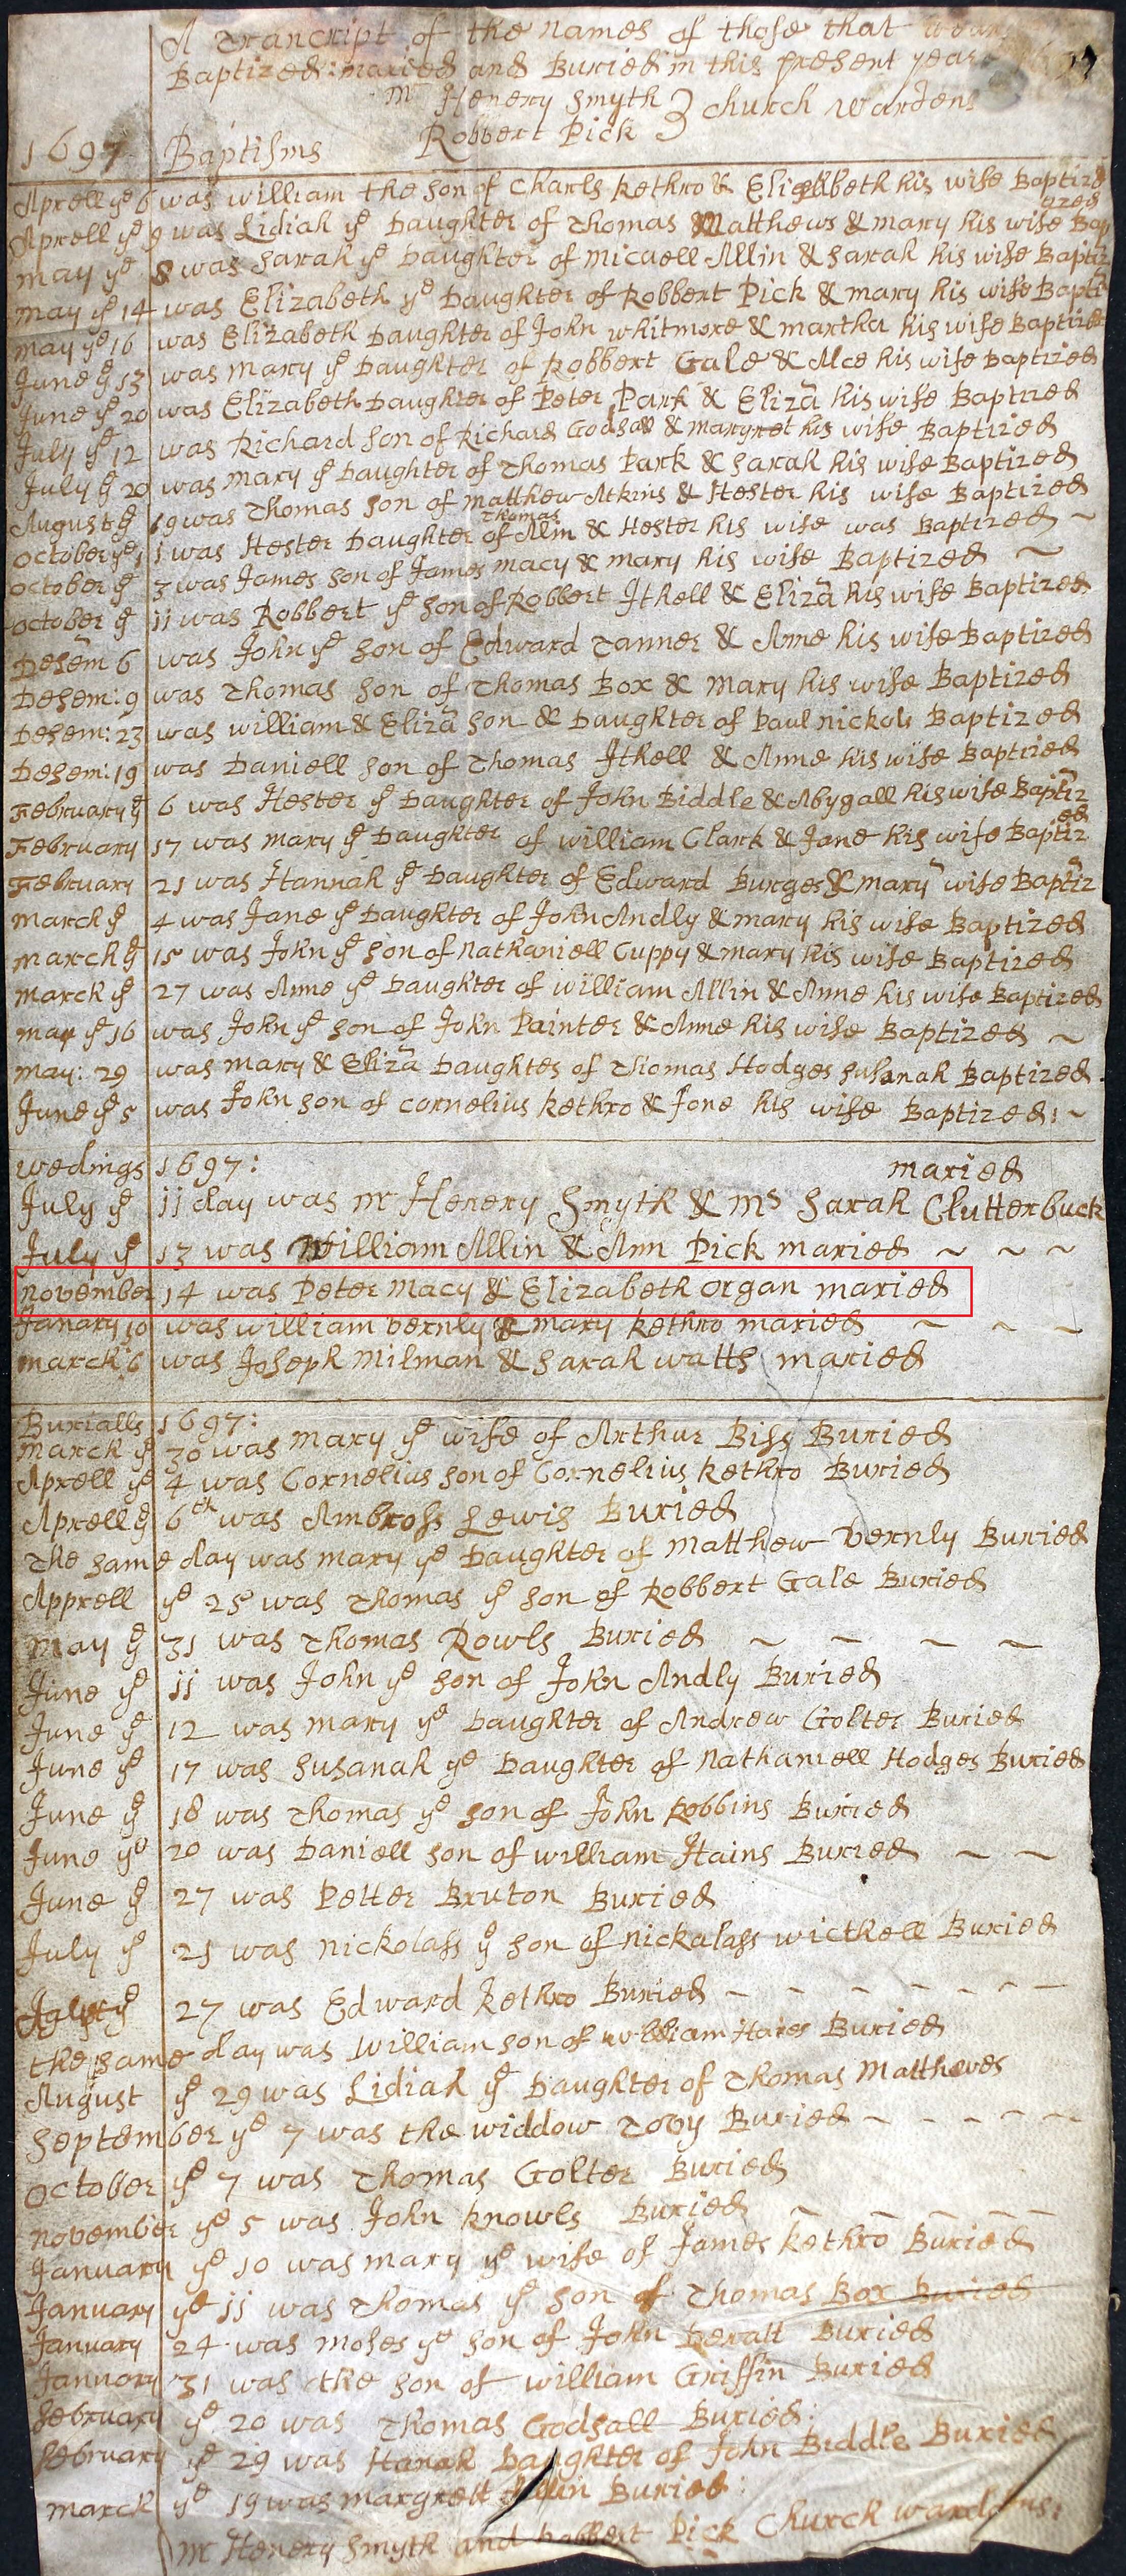 A Trancript of the names of those that
Baptized: maried and Buried in this present year
Mr Henery Smyth } church wardens
Robbert Pick
1697 Baptisms
Aprell ye 6 was william the son of Charls Kethro & Elizabeth his wife Baptized
Aprell ye 9 was Lidiah ye Daughter of Thomas Matthews & mary his wife Bap tized
may ye 8 was Sarah ye Daughter of micaell Allin & Sarah his wife Baptiz
may ye 14 was Elizabeth ye Daughter of Robbert Pick & mary his wife Bapti
may ye 16 was Elizabeth Daughter of John whitmore & martha his wife Baptized
June ye 13 was mary ye Daughter of Robbert Gale & Alce his wife Baptized
June ye 20 was Elizabeth Daughter of Peter Park & Eliza his wife Baptized
July ye 12 was Richard son of Richard Godsall & margret his wife Baptized
July ye 20 was mary ye Daughter of Thomas Park & Sarah his wife Baptized
August ye 19 was Thomas son of matthew Atkins & Hester his wife Baptized
october ye 1 was Hester Daughter of Thomas Allin & Hester his wife was Baptized ~
october ye 3 was James son of James macy & mary his wife Baptized ~
october ye 11 was Robbert ye son of Robbert Ithell & Eliza his wife Baptized
Desem 6 was John ye son of Edward Tanner & Anne his wife Baptized
Desem: 9 was Thomas son of Thomas Box & mary his wife Baptized
Desem: 23 was william & Eliza son & Daughter of Paul nickols Baptized
Desem: 19 was Daniell son of Thomas Ithell & Anne his wife Baptized
February ye 6 was Hester ye Daughter of John Biddle & Abygall his wife Baptiz
February 17 was mary ye Daughter of william Clark & Jane his wife Baptiz ed
February 21 was Hannah ye Daughter of Edward Burges & mary wife Baptiz
march ye 4 was Jane ye Daughter of John Andly & mary his wife Baptized
march ye 15 was John ye son of nathaniell Cuppy & mary his wife Baptized
march ye 27 was Anne ye Daughter of william Allin & Anne his wife Baptized
may ye 16 was John ye son of John Painter & Anne his wife Baptized ~
may: 29 was mary & Eliza Daughtes of Thomas Hodges susanah Baptized.
June ye 5 was John son of cornelius Kethro & Jone his wife Baptized: ~
wedings 1697: maried
July ye 11 day was mr Henery Smyth & ms Sarah Clutterbuck
July ye 13 was William Allin & Ann Pick maried ~ ~ ~
november 14 was Peter Macy & Elizabeth Organ maried
Janary 10 was william Vernly & mary Kethro maried ~ ~ ~
march 6 was Joseph Milman & Sarah watts maried
Burialls 1697:
march ye 30 was mary ye wife of Arthur Biss Buried
Aprell ye 4 was Cornelius son of Cornelius Kethro Buried
Aprell ye 6th was Ambross Lewis Buried
The same day was mary ye Daughter of Matthew Vernly Buried
Apprell ye 25 was Thomas ye son of Robbert Gale Buried
may ye 31 was Thomas Rowls Buried ~ ~ ~ ~
June ye 11 was John ye son of John Andly Buried
June ye 12 was mary ye Daughter of Andrew Golter Buried
June ye 17 was Susanah ye Daughter of Nathaniell Hodges Buried
June ye 18 was Thomas ye son of John Robbins Buried
June ye 20 was Daniell son of william Hains Buried ~ ~
June ye 27 was Petter Bruton Buried
July ye 21 was nickolass ye son of nickalass wicthell Buried
ye 27 was Edward Kethro Buried ~ ~ ~ ~ ~ ~ ~
the same day was William son of william Buried
August ye 29 was Lidiah ye Daughter of Thomas Matthewes
September ye 7 was the widdow Tovy Buried ~ ~ ~ ~ ~
october ye 7 was Thomas Golter Buried
november ye 5 was John Knowls Buried ~ ~ ~ ~ ~
January ye 10 was mary ye wife of James Kethro Buried
January ye 11 was Thomas ye son of Thomas Box Buried
January 24 was moses ye son of John Buried
January 31 was the son of william Griffin Buried
February ye 20 was Thomas Godsall Buried:
February ye 29 was Hanah Daughter of John Biddle Buried
march ye 19 was margrett Allin Buried:
mr Henery Smyth and Robbert Pick Church wardens: